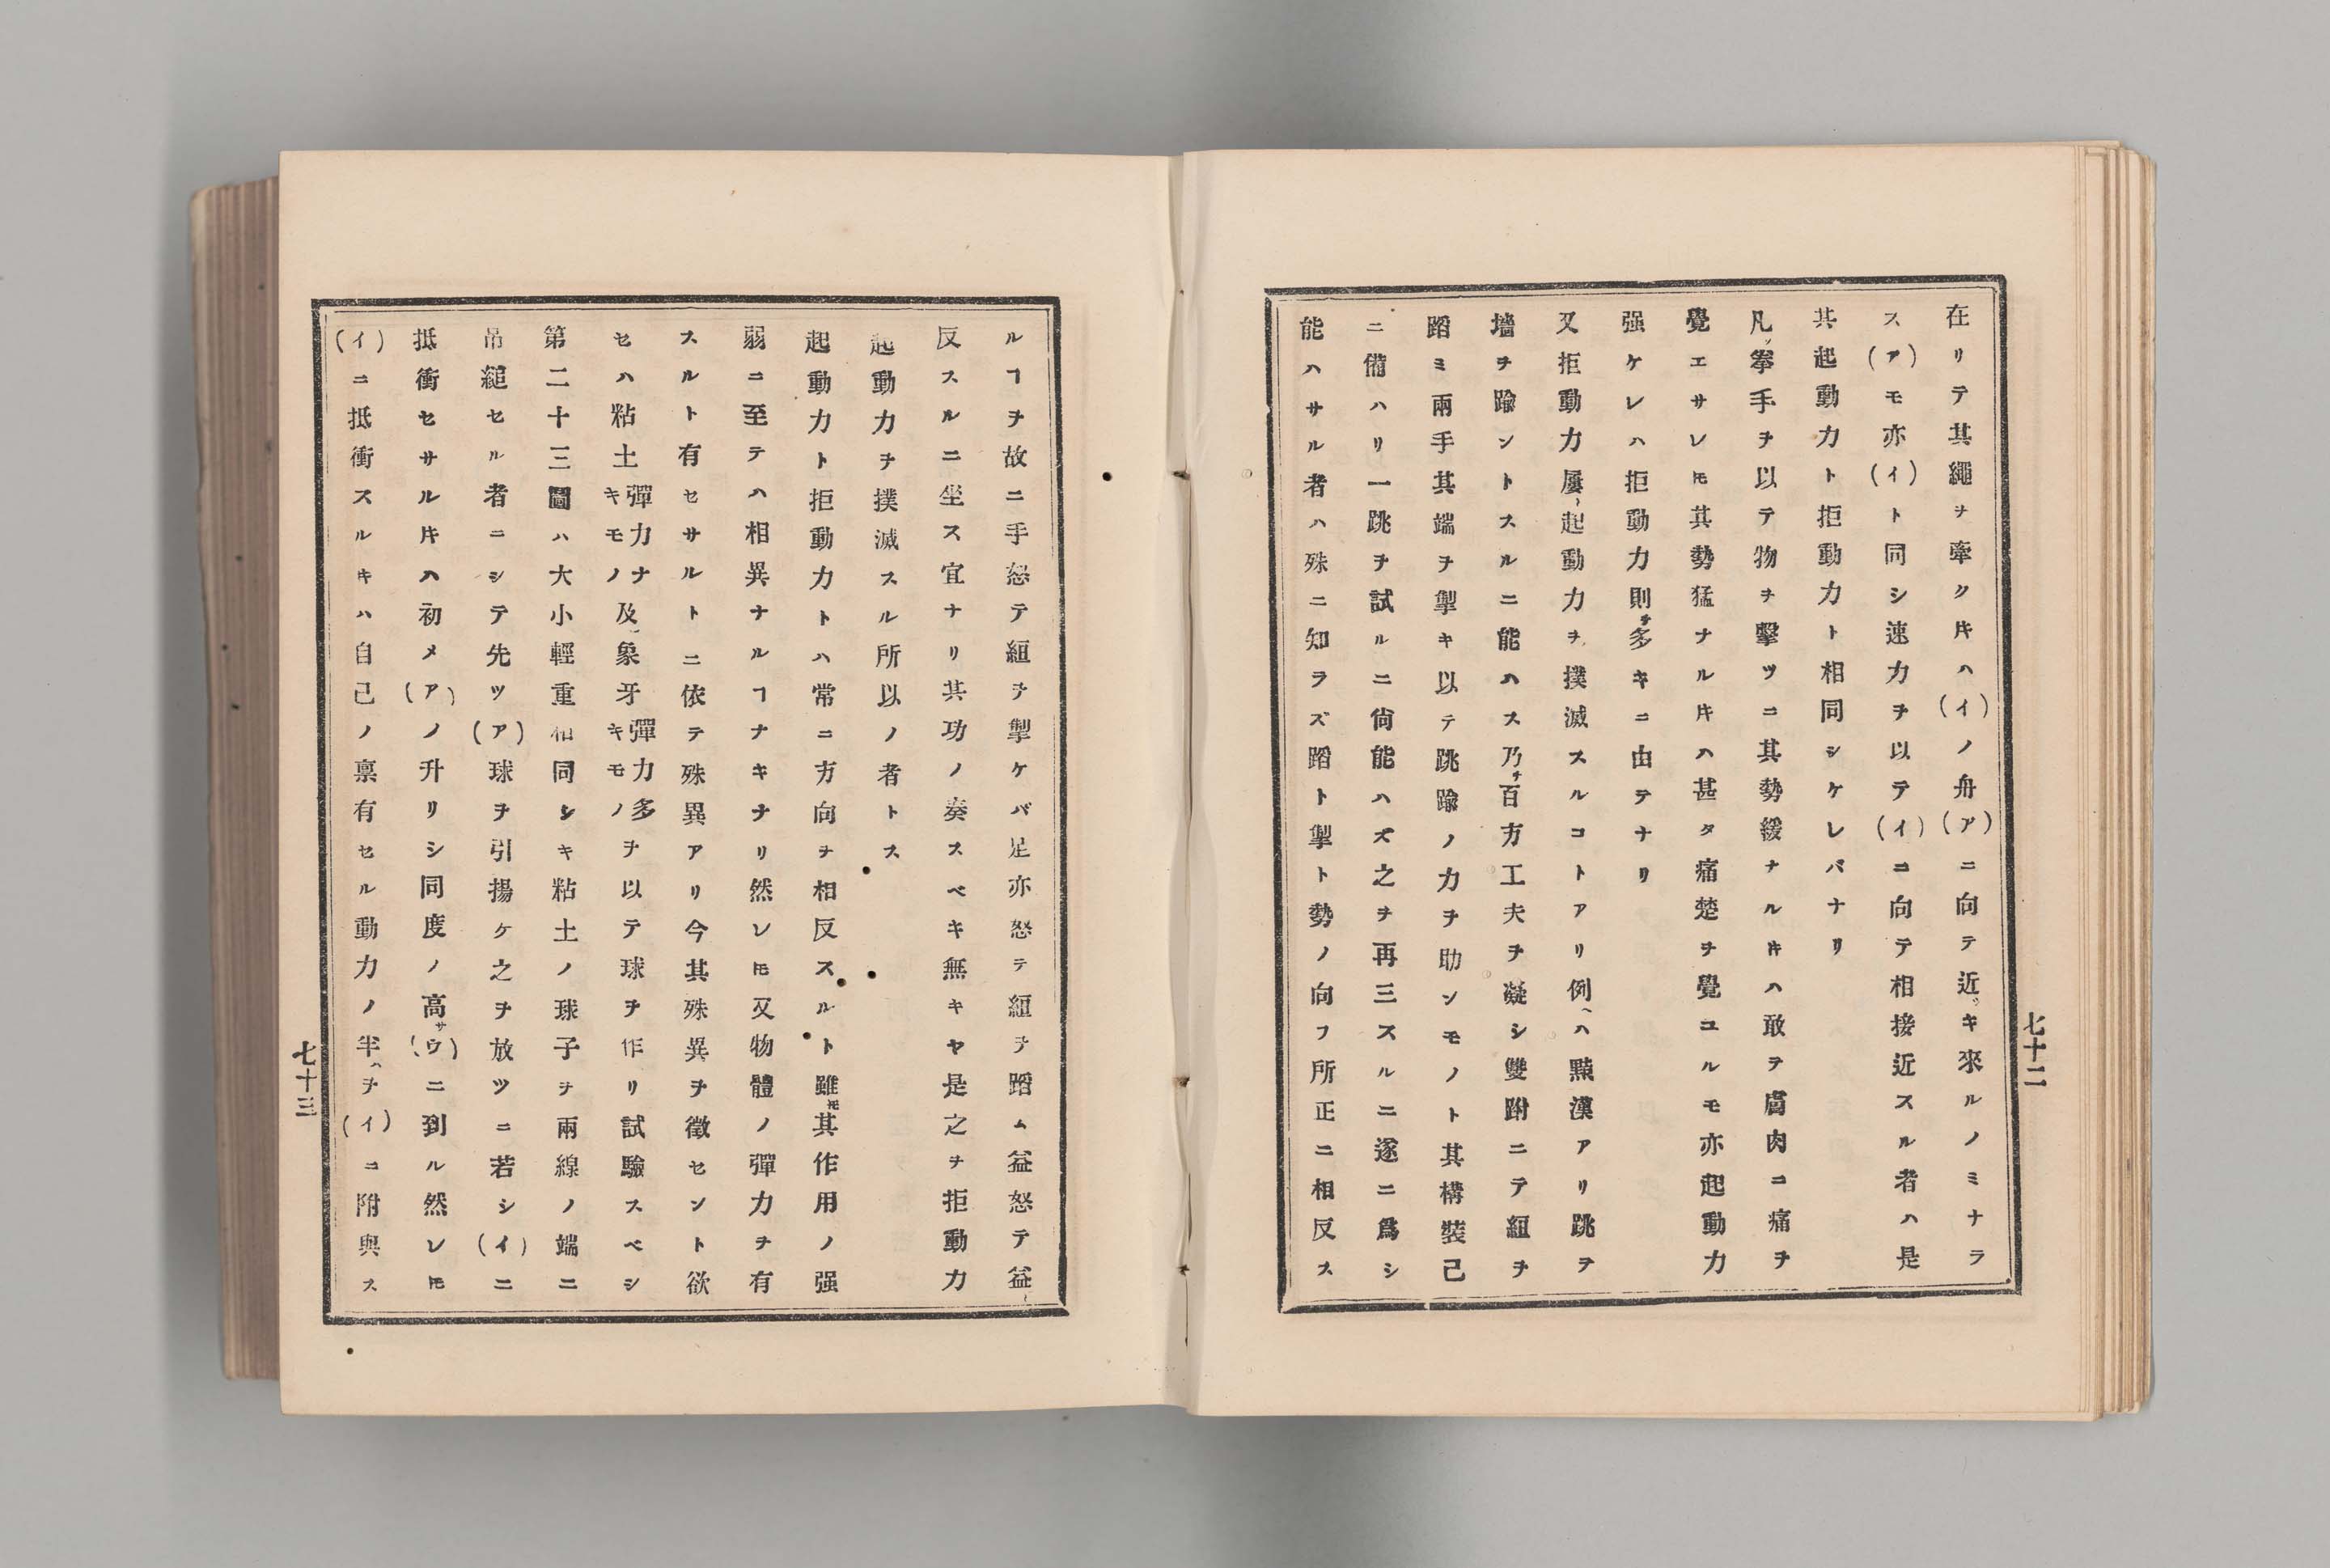 在リテ其繩ヲ牽ク𪜈ハ(イ)ノ舟(ア)ニ向テ近ッキ來ルノミナラ
ス(ア)モ亦(イ)ト同シ速力ヲ以テ(イ)ニ向テ相接近スル者ハ是
其起動力ト拒動力ト相同シケレバナリ
凡ソ拳手ヲ以テ物ヲ擊ツニ其勢緩ナルキハ敢テ膚肉ニ痛ヲ
覺エサレ𪜈其勢猛ナルキハ甚タ痛楚ヲ覺ユルモ亦起動力
强ケレハ拒動力則チ多キニ由テナリ
又拒動力屢〻起動力ヲ撲滅スルコトアリ例ヘハ黠漢アリ跳ヲ
墻ヲ踰ントスルニ能ハス乃チ百方工夫ヲ凝シ雙跗ニテ紐ヲ
蹈ミ兩手其端ヲ掣キ以テ跳踰ノ力ヲ助ンモノト其構裝己
ニ備ハリ一跳ヲ試ルニ尙能ハズ之ヲ再三スルニ遂ニ爲シ
能ハサル者ハ殊ニ知ラズ蹈ト掣ト勢ノ向フ所正ニ相反ス
七十二
ルヿヲ故ニ手怒テ紐ヲ掣ケバ足亦怒テ紐ヲ蹈ム益怒テ益〻
反スルニ坐ス宜ナリ其功ノ奏スベキ無キヤ是之ヲ拒動力
起動力ヲ撲滅スル所以ノ者トス
起動力ト拒動力トハ常ニ方向ヲ相反スルト雖𪜈其作用ノ强
弱ニ至テハ相異ナルヿナキナリ然レ𪜈又物體ノ彈力ヲ有
スルト有セサルトニ依テ殊異アリ今其殊異ヲ徵セント欲
セハ粘土彈力ナキモノ及ヒ象牙彈力多キモノヲ以テ球ヲ作リ試驗スベシ
第二十三圖ハ大小輕重相同シキ粘土ノ球子ヲ兩線ノ端ニ
吊縋セル者ニシテ先ツ(ア)球ヲ引揚ケ之ヲ放ツニ若シ(イ)ニ
抵衝セサルキハ初メ(ア)ノ升リシ同度ノ高サ(ウ)ニ到ル然レ𪜈
(イ)ニ抵衝スルキハ自己ノ禀有セル動力ノ半ヘヲ(イ)ニ附與ス
七十三